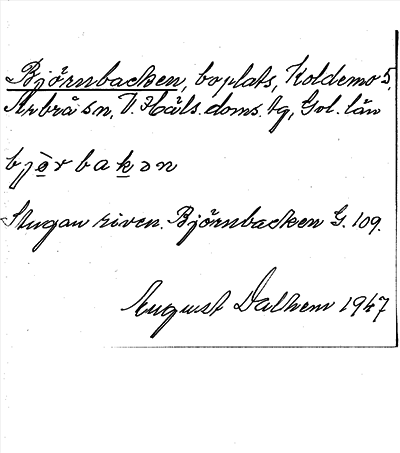 Björnbacken, boplats, Koldemo 5,
Arbrå sn, V. Häls. doms. tg, Gvl. län
bjòrbakən
Stugan riven. Björnbacken G. 109.
August Dalhem 1947